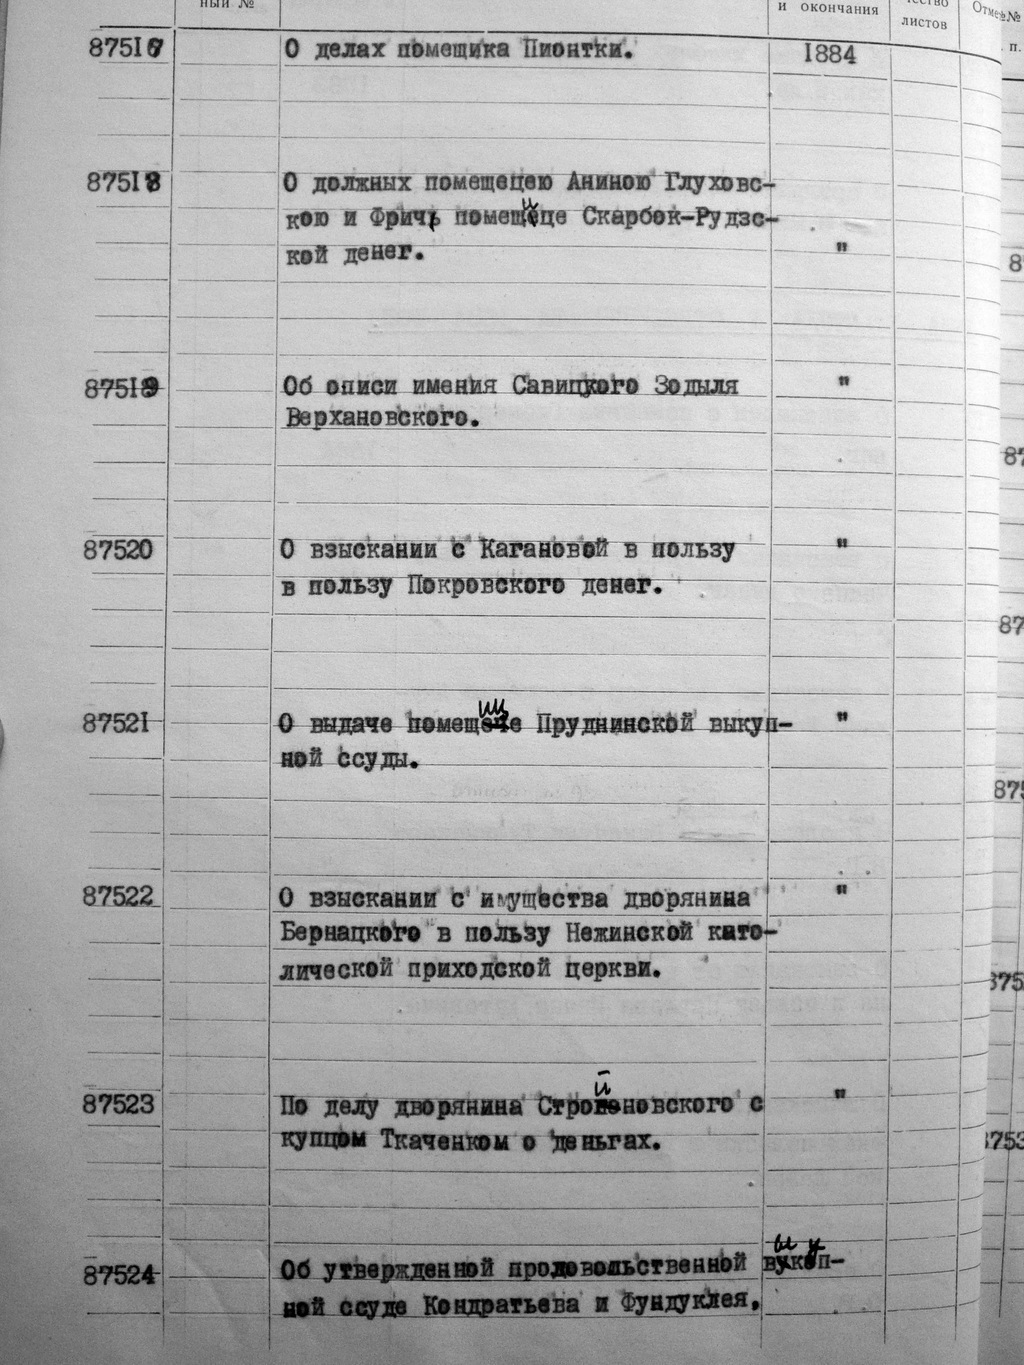 ный №
и окончания
листов
п.
87517 О делах помещика Пионтки. 1884
87518 О должных помещецею Аниною Глуховс-
кою и Фрич, помещице Скарбек-Рудзс-
кой денег. "
87519 Об описи имения Савицкого Зодыля "
Верхановского.
87520 О взыскании с Кагановой в пользу "
в пользу Покровского денег.
87521 О выдаче помещице Пруднинской выкуп- "
ной ссуды.
87522 О взыскании с имущества дворянина "
Бернацкого в пользу Нежинской като-
лической приходской церкви.
87523 По делу дворянина Стройновского с "
купцом Ткаченком о деньгах.
87524 Об утвержденной продовольственной выкуп-
ной ссуде Кондратьева и Фундуклея.